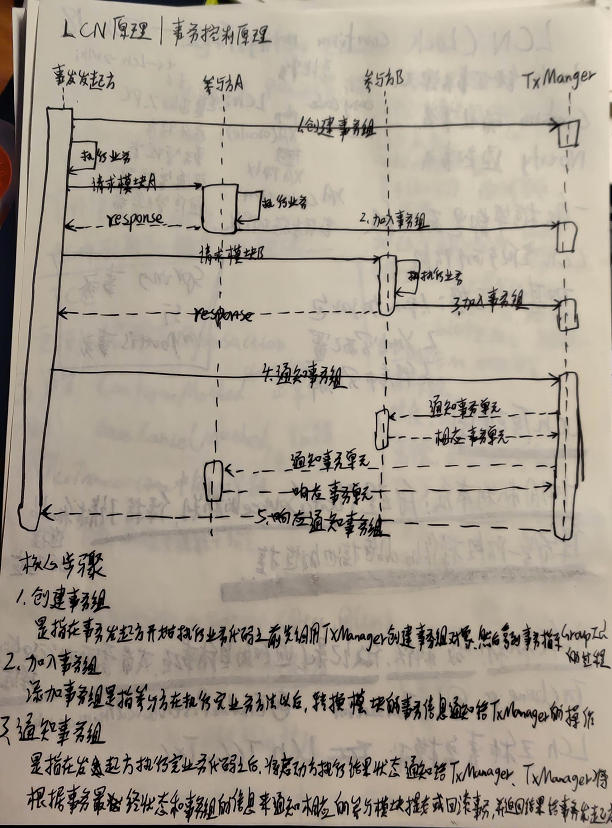 LCN原理 | 事务控制原理
事务发起方 参与方A 参与方B TxManger
1.创建事务组
执行业务
请求模块A
执行业务
response 2.加入事务组
请求模块B
执行业务
response 3.加入事务组
4.通知事务组
通知事务单元
相应事务单元
通知事务单元
响应事务单元
5.响应通知事务组
核心步骤
1.创建事务组
是指在事务发起方开始执行业务代码之前先调用TxManager创建事务组对象,然后拿到事务标示GroupId
的过程
2.加入事务组
添加事务组是指参与方在执行完业务方法以后,将该模块的事务信息通知给TxManager的操作
3.通知事务组
是指在发起方执行完业务代码之后,将发起方执行结果状态通知给TxManager、TxManager将
根据事务最终状态和事务组的信息来通知相应的参与模块提交或回滚事务,并返回结果给事务发起方